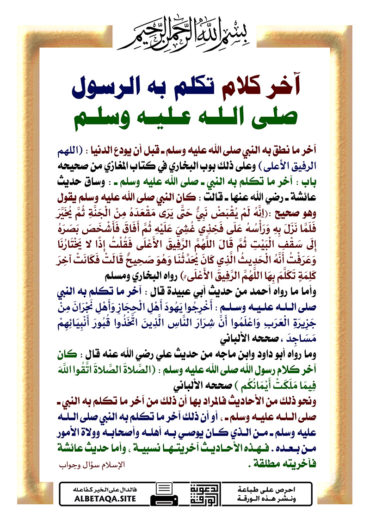 بسم الله الرحمن الرحيم
آخر كلام تكلم به الرسول
صلى الله عليه وسلم
آخر ما نطق به النبي صلى الله عليه وسلم ـ قبل أن يودع الدنيا : (اللهم
الرفيق الأعلى) وعلى ذلك بوب البخاري في كتاب المغازي من صحيحه
باب : آخر ما تكلم به النبي ـ صلى الله عليه وسلم ـ : وساق حديث
عائشة ـ رضي الله عنها ـ قالت : كان النبي صلى الله عليه وسلم يقول
وهو صحيح :(إِنَّهُ لَمْ يُقْبَضْ نَبِيٌّ حَتَّى يَرَى مَقْعَدَهُ مِنَ الْجَنَّةِ ثُمَّ يُخَيَّرَ
فَلَمَّا نَزَلَ بِهِ وَرَأْسُهُ عَلَى فَخِذِي غُشِيَ عَلَيْهِ ثُمَّ أَفَاقَ فَأَشْخَصَ بَصَرَهُ
إِلَى سَقْفِ الْبَيْتِ ثُمَّ قَالَ اللَّهُمَّ الرَّفِيقَ الْأَعْلَى فَقُلْتُ إِذًا لَا يَخْتَارُنَا
وَعَرَفْتُ أَنَّهُ الْحَدِيثُ الَّذِي كَانَ يُحَدِّثُنَا وَهُوَ صَحِيحٌ قَالَتْ فَكَانَتْ آخِرَ
كَلِمَةٍ تَكَلَّمَ بِهَا اللَّهُمَّ الرَّفِيقَ الْأَعْلَى) رواه البخاري ومسلم
وأما ما رواه أحمد من حديث أبي عبيدة قال : آخر ما تكلم به النبي
صلى الله عليه وسلم : أَخْرِجُوا يَهُودَ أَهْلِ الْحِجَازِ وَأَهْلِ نَجْرَانَ مِنْ
جَزِيرَةِ الْعَرَبِ وَاعْلَمُوا أَنَّ شِرَارَ النَّاسِ الَّذِينَ اتَّخَذُوا قُبُورَ أَنْبِيَائِهِمْ
مَسَاجِدَ ، صححه الألباني
وما رواه أبو داود وابن ماجه من حديث علي رضي الله عنه قال : كان
آخر كلام رسول الله صلى الله عليه وسلم : (الصَّلاةَ الصَّلاةَ اتَّقُوا اللَّهَ
فِيمَا مَلَكَتْ أَيْمَانُكُمْ ) صححه الألباني
ونحو ذلك من الأحاديث فالمراد بها أن ذلك من آخر ما تكلم به النبي ـ
صلى الله عليه وسلم ـ ، أو أن ذلك آخر ما تكلم به النبي صلى الله
عليه وسلم ـ من الذي كان يوصي به أهله وأصحابه وولاة الأمور
من بعده . فهذه الأحاديث آخريتها نسبية ، وأما حديث عائشة
فآخريته مطلقة .
الإسلام سؤال وجواب
احرص على طباعة
ونشر هذه الورقة
الورقة
الدعوية
فالدال على الخير كفاعله
ALBETAQA.SITE